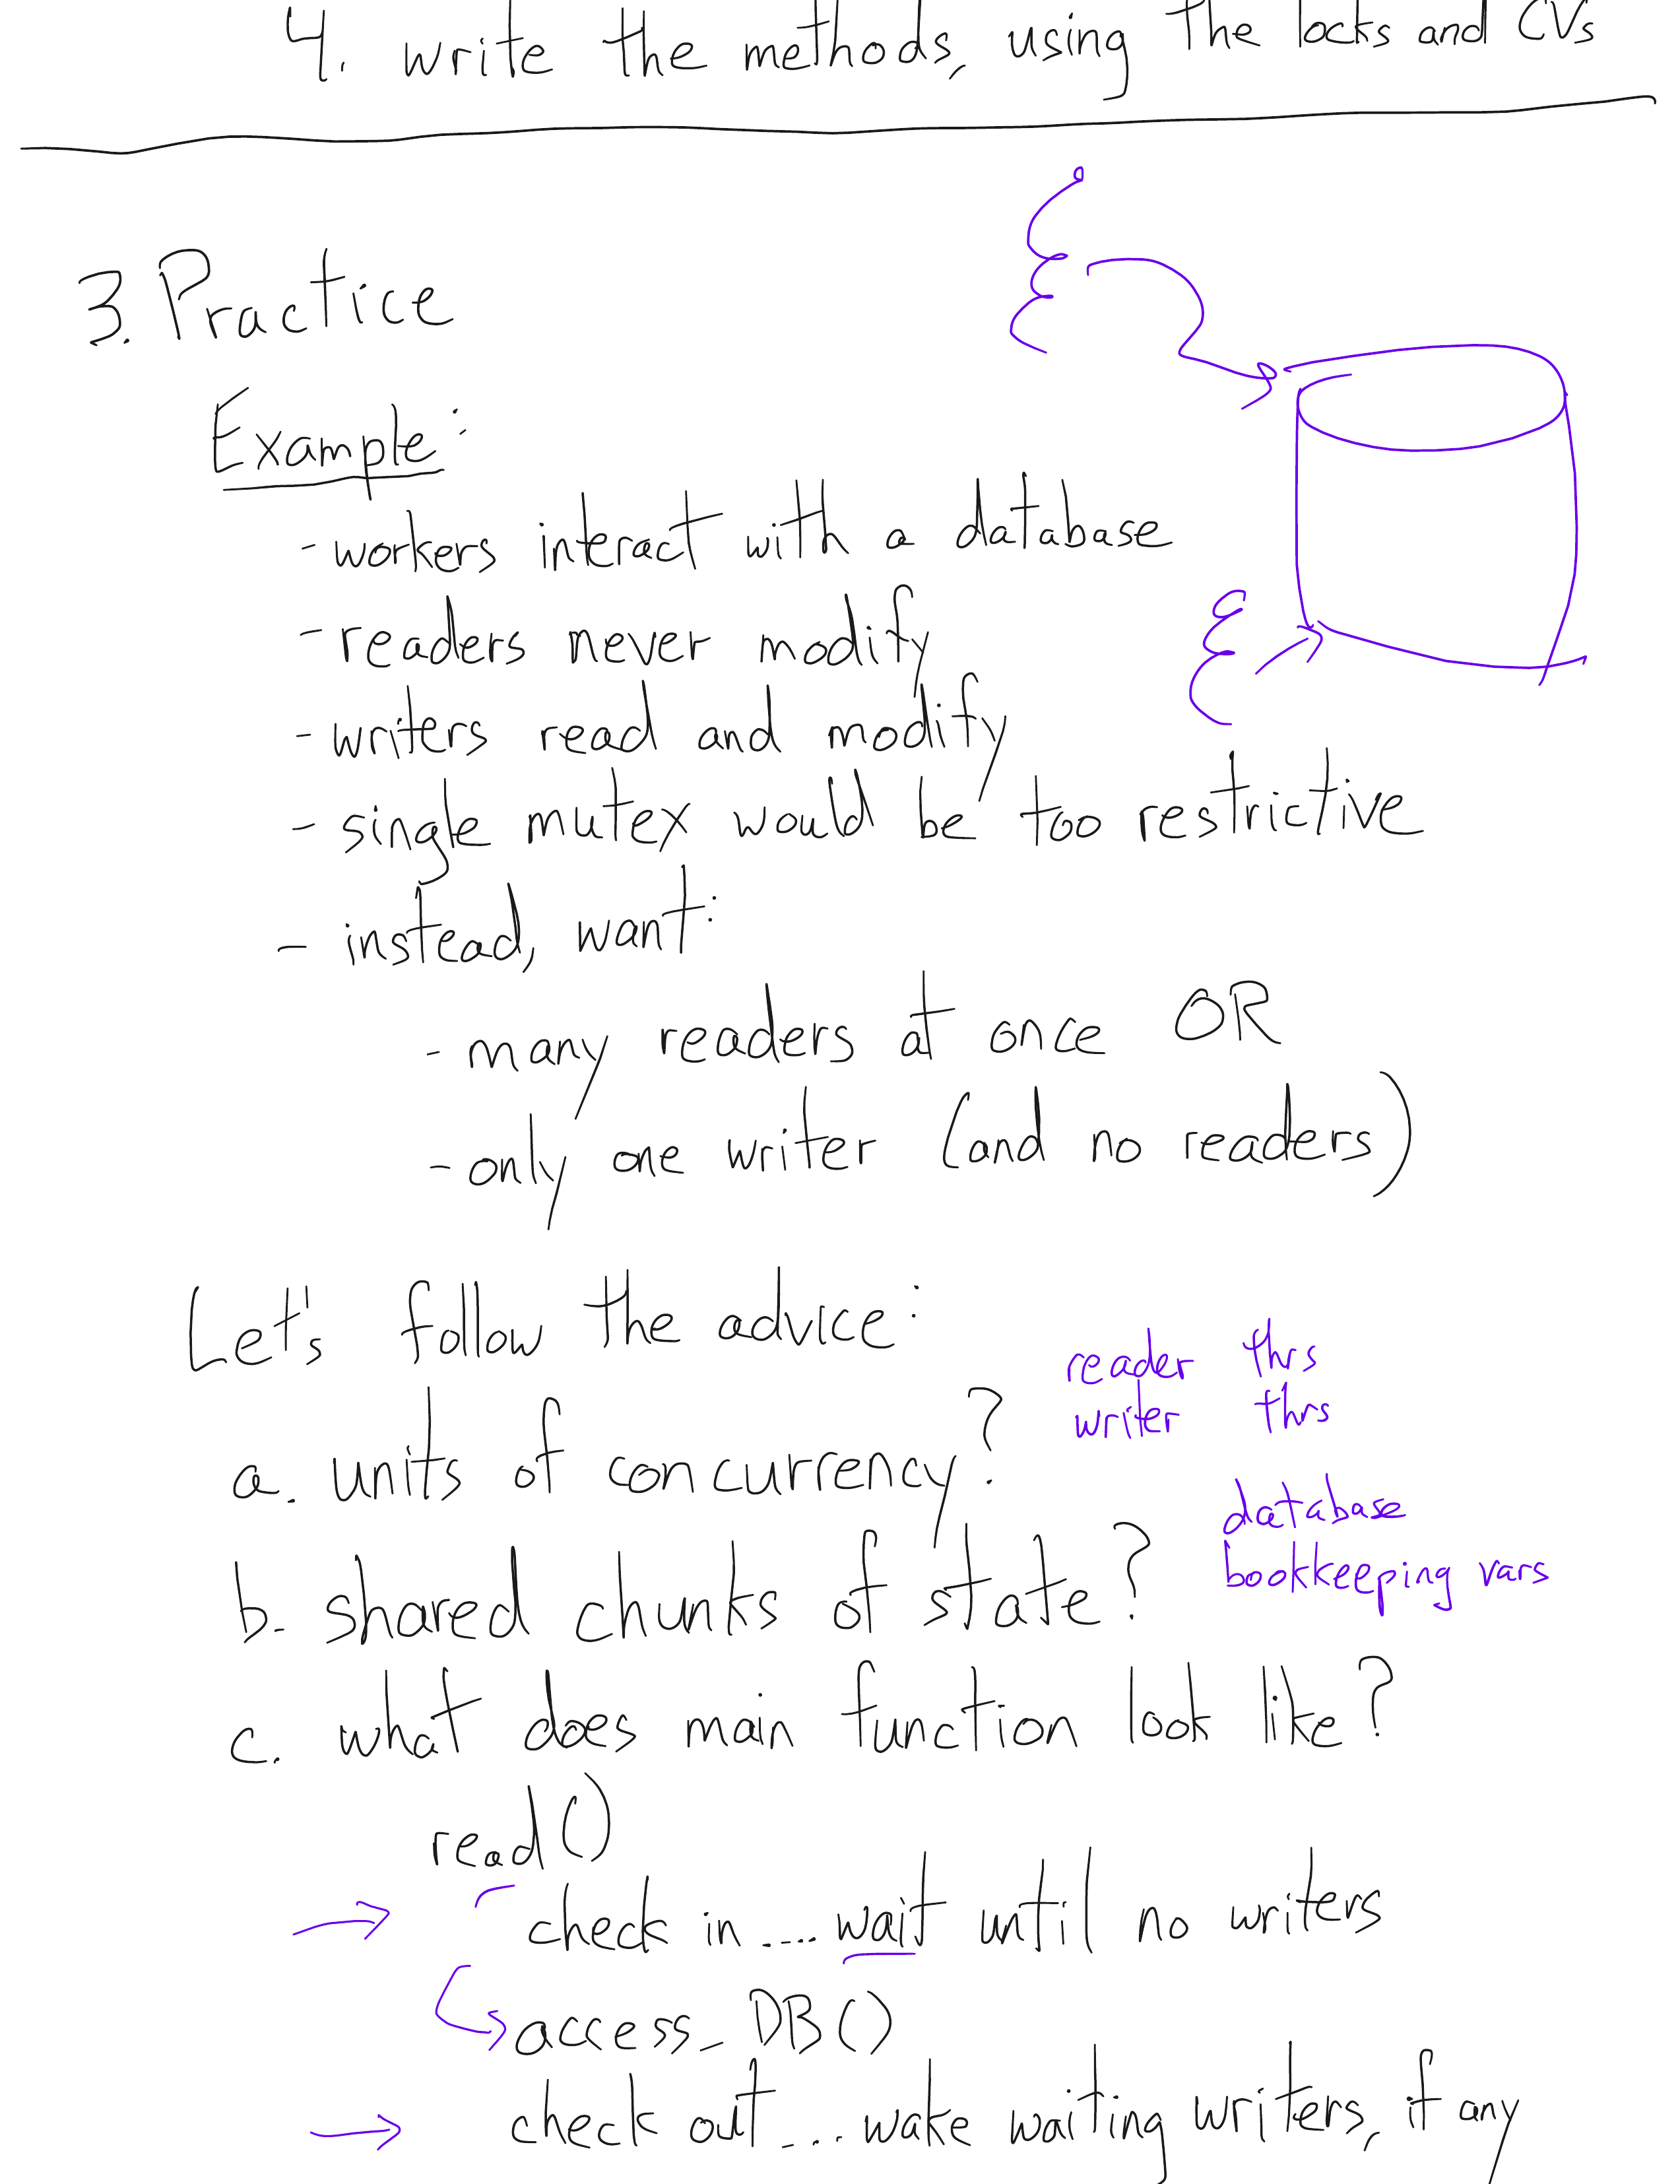 4. write the methods, using the locks and CVs
3. Practice
Example:
- workers interact with a database
- readers never modify
- writers read and modify
- single mutex would be too restrictive
- instead, want:
- many readers at once OR
- only one writer (and no readers)
Let's follow the advice:
reader thrs
writer thrs
a. units of concurrency?
database
bookkeeping vars
b. shared chunks of state?
c. what does main function look like?
read()
check in .... wait until no writers
access_DB()
check out ... wake waiting writers, if any